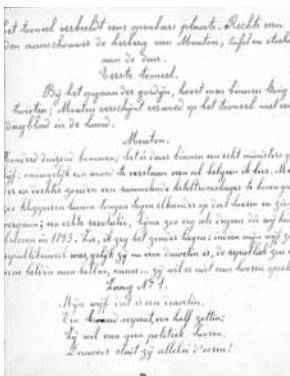 het tooneel verbeeldt eene openbare plaats. Rechts van
den aanschouwer de herberg van Mouton, tafel en stoelen
aan de deur.
Eerste tooneel.
Bij het opgaan der gordijn, hoort men binnen hevig
twisten; Mouton verschijnt verwoed op het tooneel met een
dagblad in de hand.
Mouton.
duizend bommen, het is daar binnen een echt ministerie
onmogelijk een woord te verstaan van al hetgeen ik lees.
en eene
zoo klepperen hunne tongen tegen elkander op dat hooren en zien
vergaan; eene echte revolutie, bijna zoo erg als degene die wij
beleven in 1793. Zie, ik zeg het zonder liegen: indien mijn wijf
republikeinsch was, gelijk zij nu een duivelin is, de republiek zou
eene heldin meer tellen, maar... zij wil er niet van hooren
Zang Nº 1.
Mijn wijf dat is een duivelin,
Een serpent, een half zottin;
Zij wil van geen politiek hooren,
Daarvoor sluit zij allebei d'ooren!